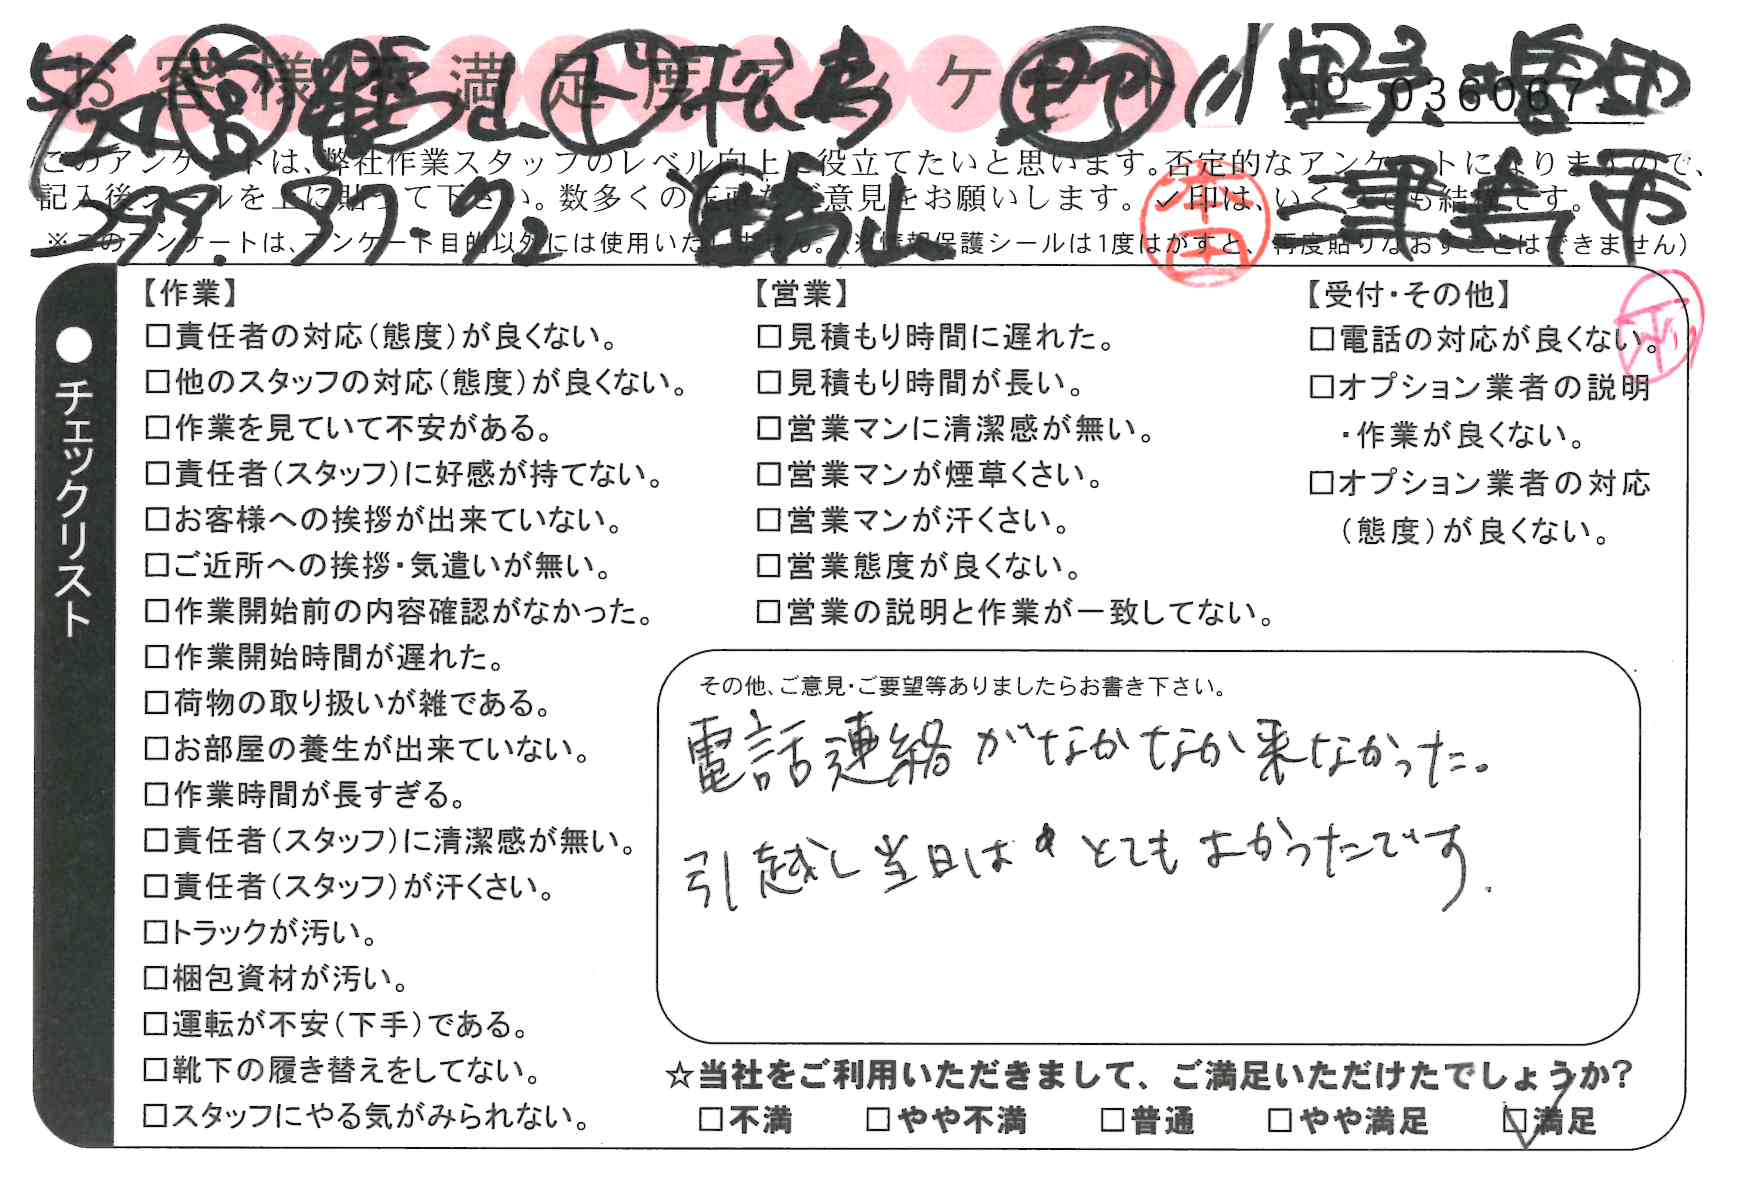 お客様不満足度アンケート No 036067
このアンケートは、弊社作業スタッフのレベル向上に役立てたいと思います。否定的なアンケートになりますので、
記入後シールを上に貼って下さい。数多くの正直なご意見をお願いします。✓印は、いくつでも結構です。
※このアンケートは、アンケート目的以外には使用いたしません。(※情報保護シールは1度はがすと、再度貼りなおすことはできません)
津島市
本田
●チェックリスト
【作業】
□責任者の対応(態度)が良くない。
□他のスタッフの対応(態度)が良くない。
□作業を見ていて不安がある。
□責任者(スタッフ)に好感が持てない。
□お客様への挨拶が出来ていない。
□ご近所への挨拶・気遣いが無い。
□作業開始前の内容確認がなかった。
□作業開始時間が遅れた。
□荷物の取り扱いが雑である。
□お部屋の養生が出来ていない。
□作業時間が長すぎる。
□責任者(スタッフ)に清潔感が無い。
□責任者(スタッフ)が汗くさい。
□トラックが汚い。
□梱包資材が汚い。
□運転が不安(下手)である。
□靴下の履き替えをしてない。
□スタッフにやる気がみられない。
【営業】
□見積もり時間に遅れた。
□見積もり時間が長い。
□営業マンに清潔感が無い。
□営業マンが煙草くさい。
□営業マンが汗くさい。
□営業態度が良くない。
□営業の説明と作業が一致してない。
【受付・その他】
□電話の対応が良くない。
□オプション業者の説明
・作業が良くない。
□オプション業者の対応
(態度)が良くない。
その他、ご意見・ご要望等ありましたらお書き下さい。
電話連絡がなかなか来なかった。
引越し当日はとてもよかったです。
☆当社をご利用いただきまして、ご満足いただけたでしょうか?
□不満 □やや不満 □普通 □やや満足 ☑満足